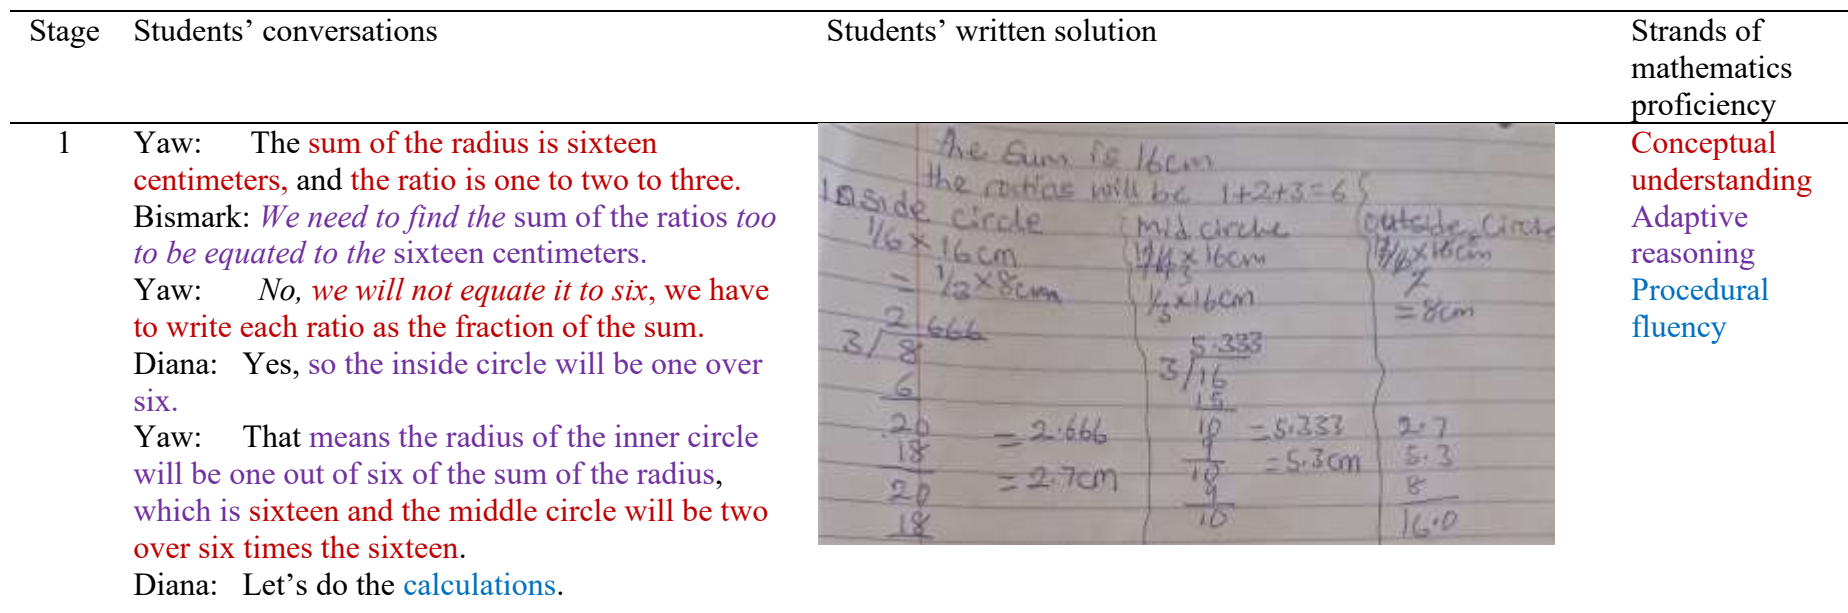 Stage Students’ conversations Students’ written solution Strands of
mathematics
proficiency
1 Yaw: The sum of the radius is sixteen
centimeters, and the ratio is one to two to three.
Bismark: We need to find the sum of the ratios too
to be equated to the sixteen centimeters.
Yaw: No, we will not equate it to six, we have
to write each ratio as the fraction of the sum.
Diana: Yes, so the inside circle will be one over
six.
Yaw: That means the radius of the inner circle
will be one out of six of the sum of the radius,
which is sixteen and the middle circle will be two
over six times the sixteen.
Diana: Let’s do the calculations.
the sum is 16cm
the will be 1+2+3=6
Inside circle
1/6 × 16cm
= 1/3 × 8cm
2.666
3/8
6
20
18
20
18
= 2.666
= 2.7cm
mid circle
× 16cm
1/3 × 16cm
5.333
3/16
15
10
9
10
9
10
= 5.333
= 5.3cm
outside circle
× 16cm
= 8cm
2.7
5.3
8
16.0
Conceptual
understanding
Adaptive
reasoning
Procedural
fluency